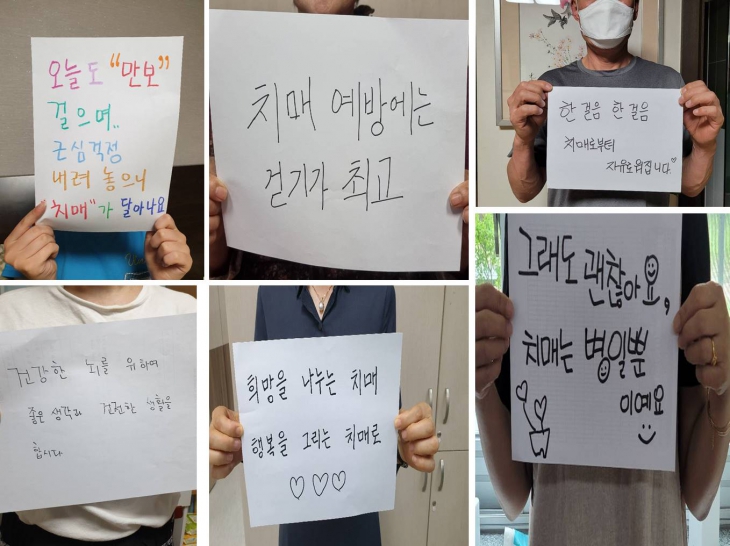 오늘도 "만보"
걸으며..
근심걱정
내려 놓으니
"치매"가 달아나요
치매 예방에는
걷기가 최고
한걸음 한걸음
치매로부터
자유로워집니다♡
건강한 뇌를 위하여
좋은 생각과 건전한 생활을
합시다
희망을 나누는 치매
행복을 그리는 치매로
♡♡♡
그래도 괜찮아요,
치매는 병일뿐
이예요